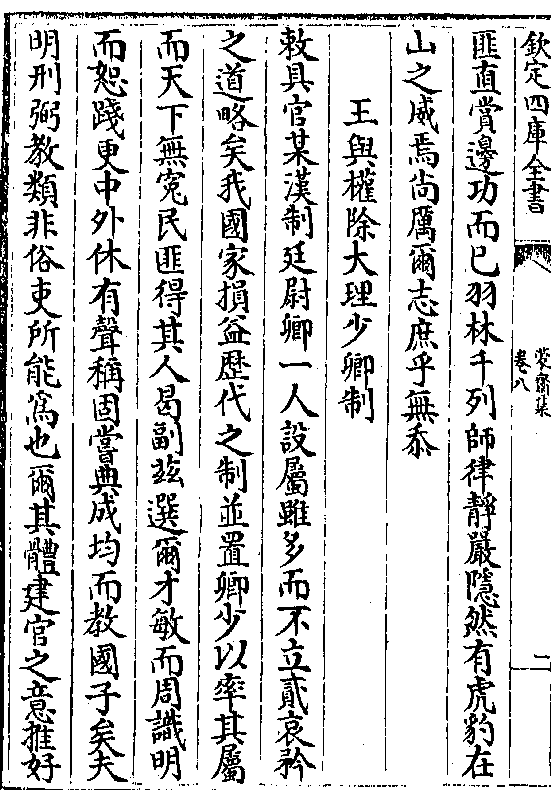 欽定四庫全書
蒙齋集
卷八
二
匪直賞邊功而已羽林千列師律靜嚴隱然有虎豹在
山之威焉尚厲爾志庶乎無忝
王與權除大理少卿制
敕具官某漢制廷尉卿一人設屬雖多而不立貳哀矜
之道略矣我國家損益歴代之制並置卿少以率其屬
而天下無冤民匪得其人曷副兹選爾才敏而周識明
而恕踐更中外休有聲稱固嘗典成均而教國子矣夫
明刑弼教類非俗吏所能爲也爾其體建官之意推好